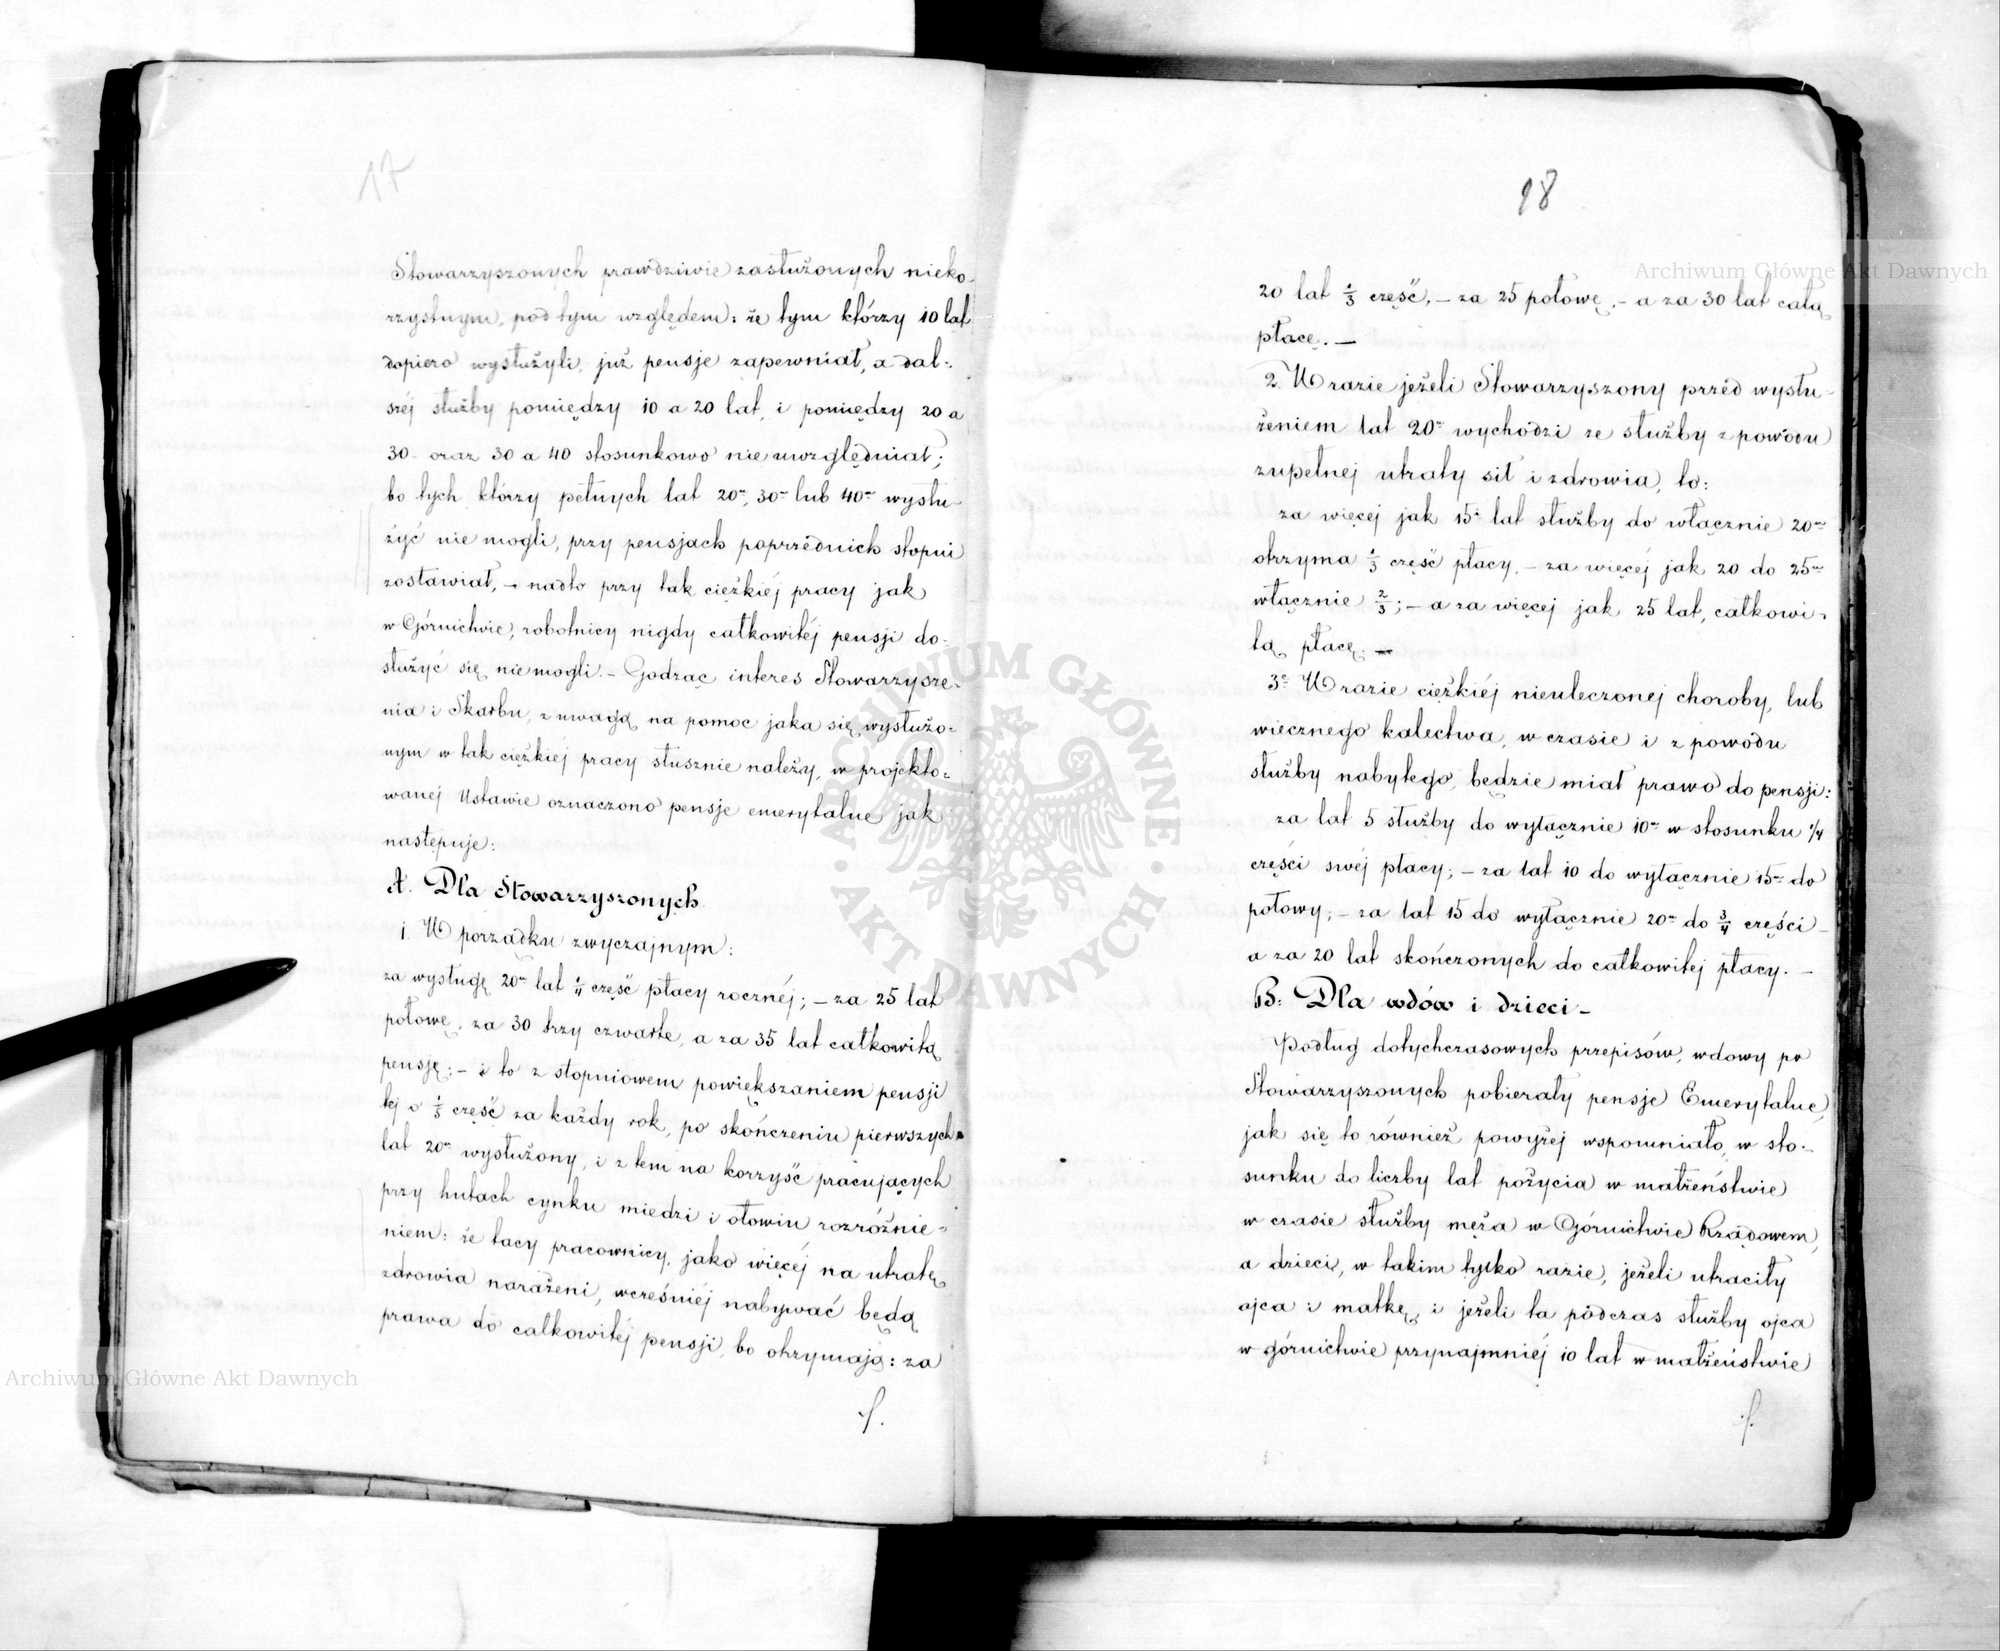 17
Stowarzyszonych prawdziwie zasłużonych nieko-
rzystnym, pod tym względem: że tym którzy 10 lat
dopiero wysłużyli, już pensje zapewniał, a dal-
széj służby pomiędzy 10 a 20 lat, i pomiędzy 20 a
30 oraz 30 a 40 stosunkowo nie uwzględniał;
bo tych którzy pełnych lat 20tu, 30tu lub 40tu wysłu-
żyć nie mogli, przy pensjach poprzednich stopni
zostawiał, – nadto przy tak ciężkiéj pracy jak
w Górnictwie, robotnicy nigdy całkowitéj pensji do-
służyć się niemogli. – Godząc interes Stowarzysze-
nia i Skarbu, z uwagą na pomoc jaka się wysłużo-
nym w tak ciężkiéj pracy słusznie należy, w projekto-
wanej Ustawie oznaczono pensje emerytalne jak
następuje:
A. Dla Stowarzyszonych
1. W porządku zwyczajnym:
za wysługę 20tu lat ¼ część płacy rocznéj; – za 25 lat
połowę, za 30 trzy czwarte, a za 35 lat całkowitą
pensję; – i to z stopniowem powiększaniem pensji
téj o ⅕ część za każdy rok, po skończeniu pierwszych
lat 20tu wysłużony, i z tem na korzyść pracujących
przy hutach cynku miedzi i ołowiu rozróżnie-
niem: że tacy pracownicy, jako więcéj na utratę
zdrowia narażeni, wcześniéj nabywać będą
prawa do całkowitéj pensji, bo otrzymają: za
18
20 lat ⅓ część, – za 25 połowę, – a za 30 lat całą
płacę. –
2. W razie jeżeli Stowarzyszony przéd wysłu-
żeniem lat 20tu wychodzi ze służby z powodu
zupełnej utraty sił i zdrowia, to:
za więcej jak 15 lat służby do włącznie 20tu
otrzyma ⅓ część płacy, – za więcéj jak 20 do 25ciu
włącznie ⅔; – a za więcéj jak 25 lat, całkowi-
tą płacę. –
3e W razie ciężkiéj nieuleczonej choroby, lub
wiecznego kalectwa, w czasie i z powodu
służby nabytego, będzie miał prawo do pensji:
za lat 5 służby do wyłącznie 10u w stosunku ¼
części swéj płacy; – za lat 10 do wyłącznie 15tu do
połowy; – za lat 15 do wyłącznie 20tu do ¾ części –
a za 20 lat skończonych do całkowitej płacy. –
B: Dla wdów i dzieci –
Podług dotychczasowych przepisów, wdowy po
Stowarzyszonych pobierały pensje Emerytalne,
jak się to również powyżej wspomniało, w sto-
sunku do liczby lat pożycia w małżeństwie
w czasie służby męża w Górnictwie Rządowem,
a dzieci, w takim tylko razie, jeżeli utraciły
ojca i matkę, i jeżeli ta podczas służby ojca
w górnictwie przynajmniéj 10 lat w małżeństwie
Archiwum Główne Akt Dawnych
Archiwum Główne Akt Dawnych
ARCHIWUM GŁÓWNE · AKT DAWNYCH ·